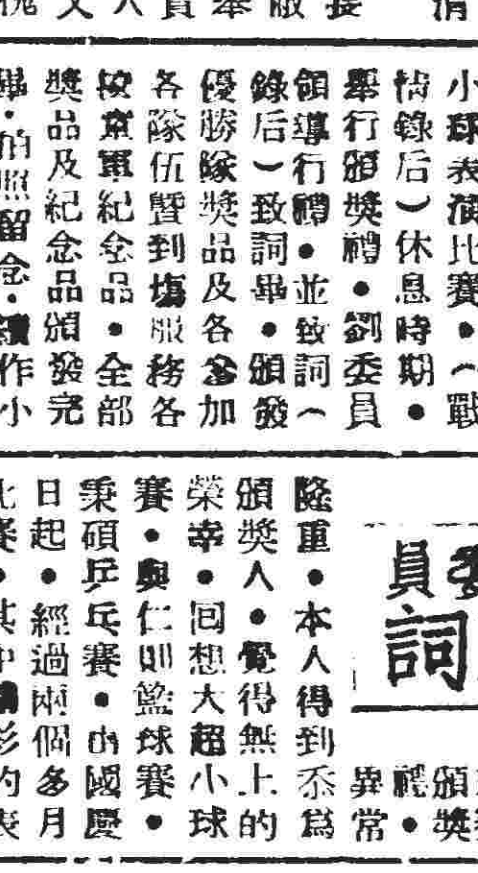 小球表演比賽•（戰
情錄后）休息時期•
舉行頒獎禮•劉委員
領導行禮•並致詞（
錄后）致詞畢•頒發
優勝隊獎品及各參加
各隊伍暨到場服務各
按童軍紀念品•全部
獎品及紀念品頒發完
畢•拍照留念•續作小
委
員
詞
頒獎
禮•
異常
隆重•本人得到忝為
頒獎人•覺得無上的
榮幸•回想大超小球
賽•與仁則籃球賽•
秉碩乒乓賽•由國慶
日起•經過兩個多月